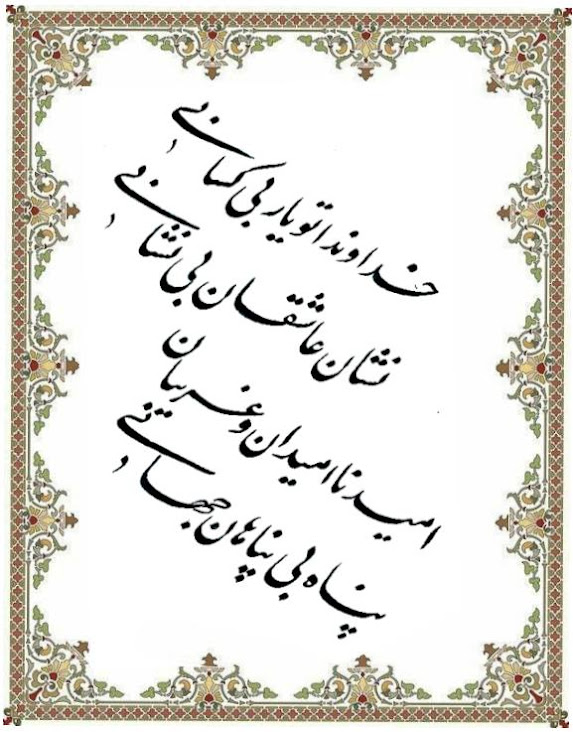 خداوندا تو یار بی کسانی
نشان عاشقان بی نشانی
امید ناامیدان و غریبان
پناه بی پناهان جهانی